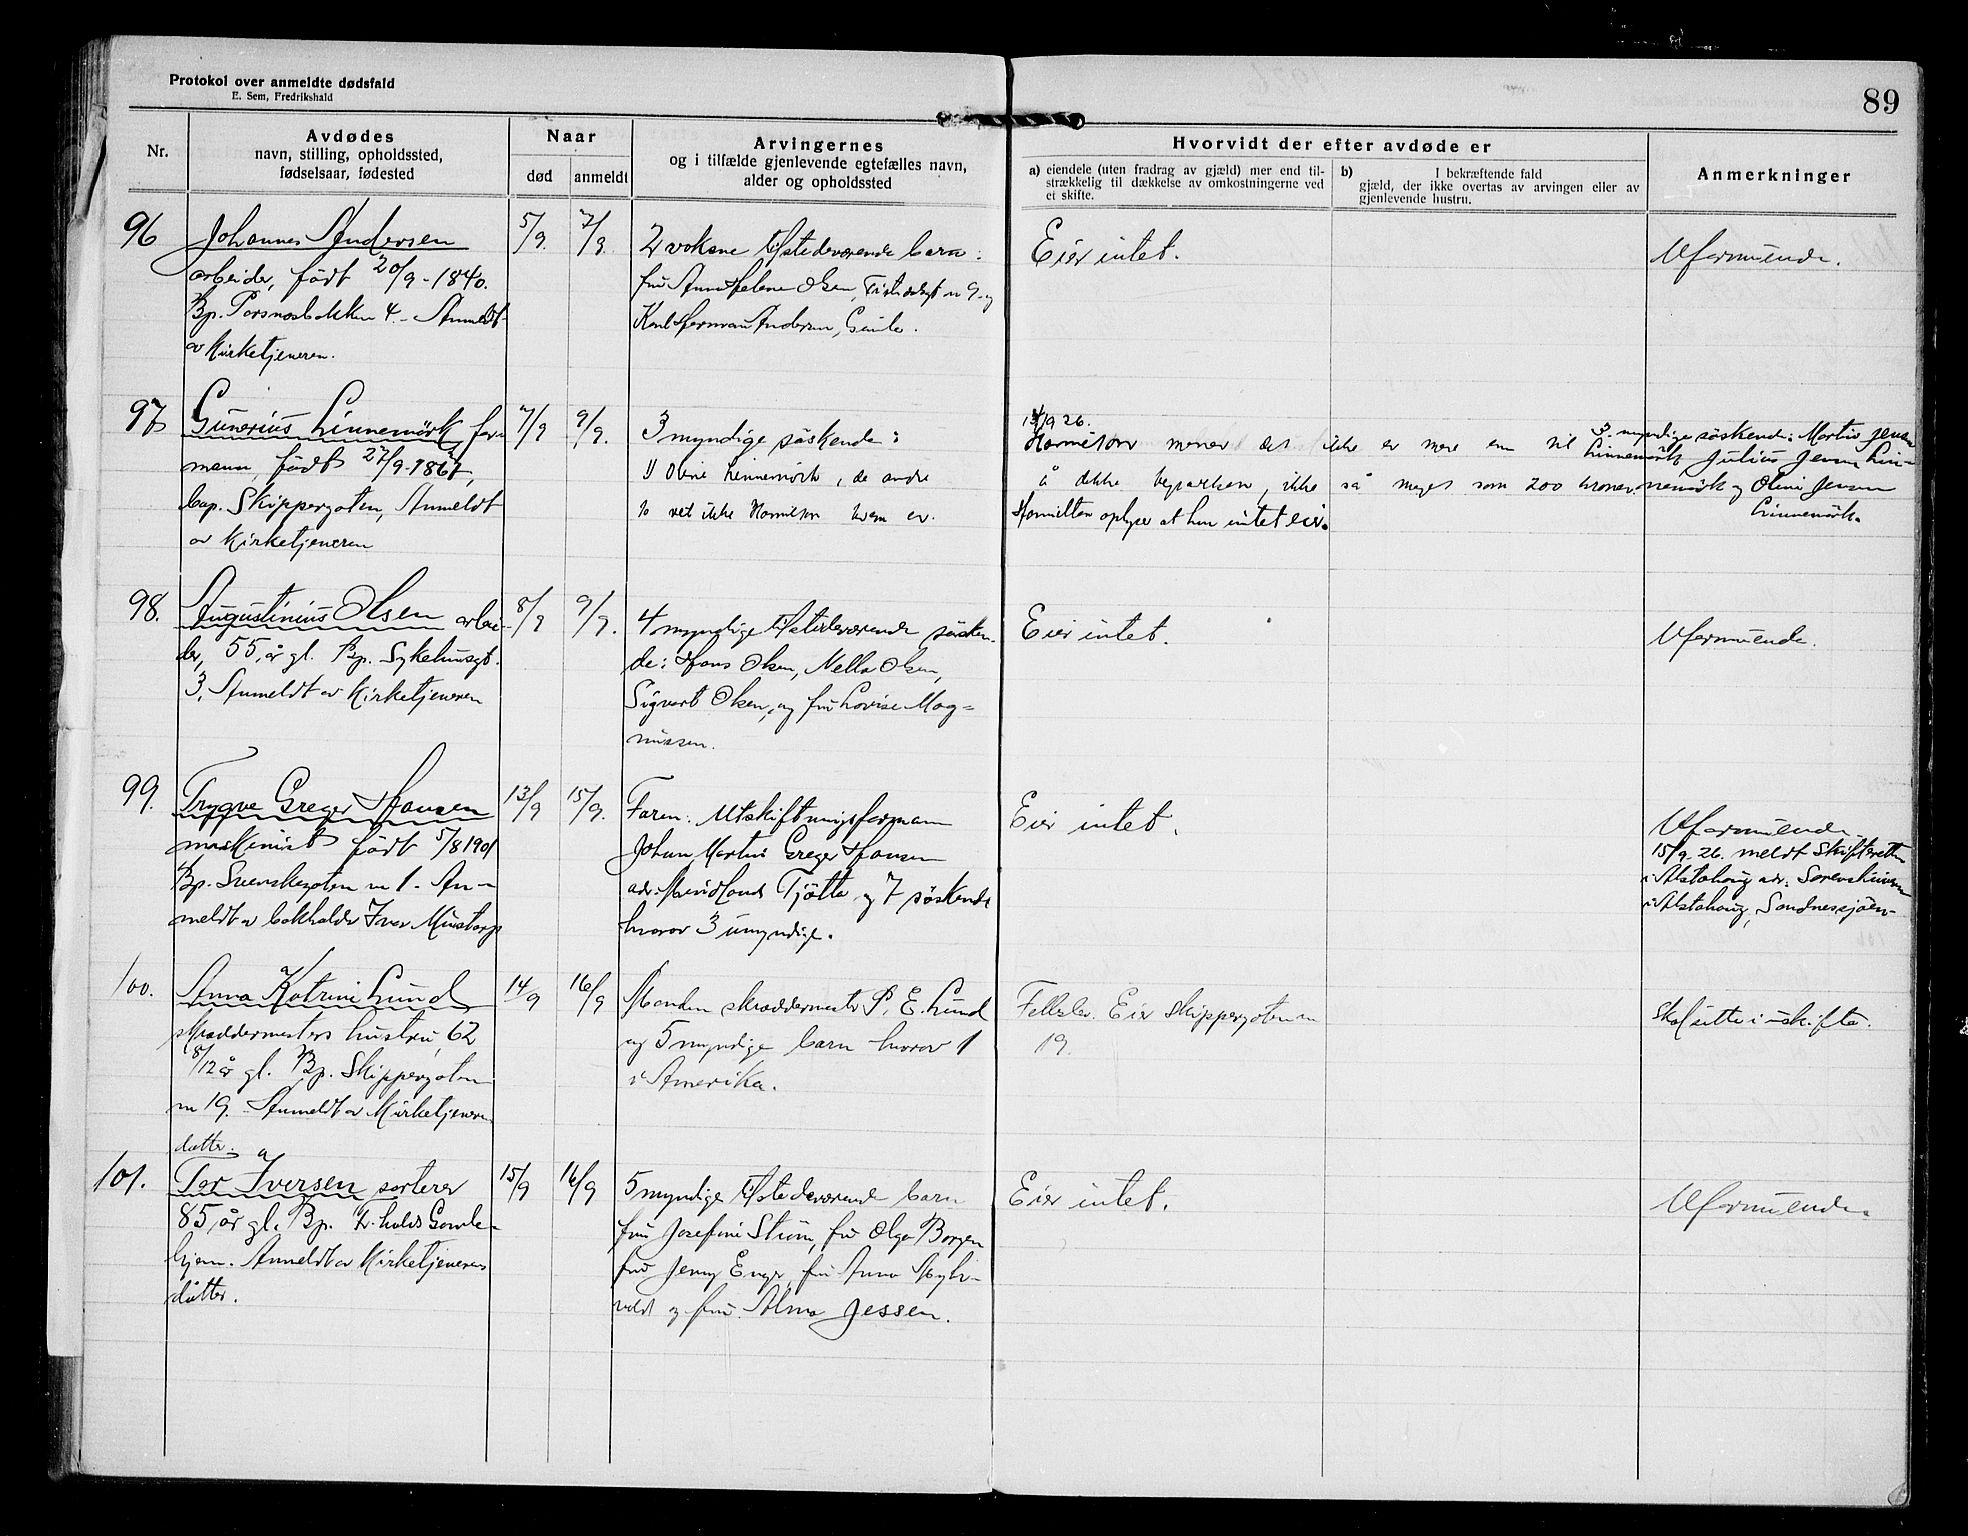 Protokol over anmeldte dødsfald
E. Sem, Fredrikshald
89
Nr.
Avdødes
navn, stilling, opholdssted,
fødselsaar, fødested
Naar
død
anmeldt
Arvingernes
og i tilfælde gjenlevende egtefælles navn,
alder og opholdssted
Hvorvidt der efter avdøde er
a) eiendele (uten fradrag av gjæld) mer end til-
strækkelig til dækkelse av omkostningerne ved
et skifte.
b) I bekræftende fald
gjæld, der ikke overtas av arvingen eller av
gjenlevende hustru.
Anmerkninger
96
Johannes Andersen
arbeider, født 20/9-1840.
Bp. Porsnesbakken 4. - Anmeldt
av Kirketjeneren.
5/9
7/9
2 voksne tilstedeværende barn:
fru Anne Helene Olsen, og
Karl Herman Andersen, Gimle.
Eier intet.
Uformuende.
97
Gunerius Linnemörk for-
mann, född 27/9-1867,
bop. Skippergaten, Anmeldt
av Kirketjeneren
7/9
9/9.
3 myndige søskende:
1) Oline Linnemörk, de andre
to vet ikke Hamilton hvem er.
13/9 26.
Hamilton mener det ikke er mere enn til
å dekke begravelsen, ikke så meget som 200 kroner.
Hamilton oplyser at hun intet eier.
3 myndige søskende: Martin Jensen
Linnemörk Julius Jensen Lin-
nemörk og Oline Jensen
Linnemörk.
98.
Augustinius Olsen arbei-
der, 55 år gl. Bp. Sykehusgt.
3. Anmeldt av Kirketjeneren
8/9
9/9.
4 myndige tilstedeværende søsken-
de: Hans Olsen, Nella Olsen,
Sigvart Olsen, og fru Lovise Mag-
nussen.
Eier intet.
Uformuende.
99.
Trygve Greger Hansen
maskinist født 5/8 1901
Bp. Svenskegaten nr 1. An-
meldt av bokholder Ivar Mustorp
13/9
15/9.
Faren: Utskiftningsformann
Johan Martin Greger Hansen
adr. Mindland Tjötta og 7 søskende
hvorav 3 umyndige.
Eier intet.
Uformuende.
15/9-26. meldt Skifteretten
i Alstahoug adr: Sorenskriveren
i Alstahoug, Sandnessjöen.
100.
Anna Katrine Lund
skreddermesters hustru, 62
8/12 år gl. Bp. Skippergaten
nr 19. Anmeldt av Kirketjeneren
datter.
14/9
16/9
Manden skreddermester P. E. Lund
og 5 myndige barn hvorav 1
i Amerika.
Felleslev. Eier Skippergaten nr
19.
Skal sitte i uskifte.
101.
Tor Iversen sorterer
85 år gl. Bp. Fr.halds Gamle-
hjem. Anmeldt av Kirketjenerens
datter.
15/9
16/9
5 myndige tilstedeværende barn
fru Josefine Strøm, fru Olga Borgen
fru Jenny Enger, fru Anna
og fru Alma Jessen.
Eier intet.
Uformuende.